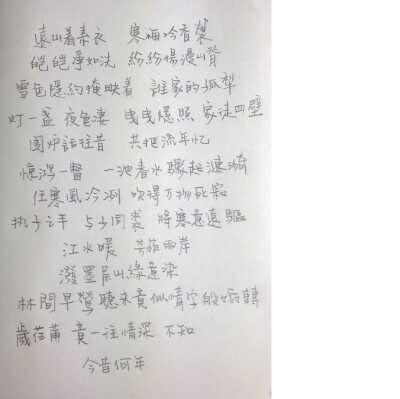 遠山着素衣 寒梅吟香襲
皑皑净如洗 紛紛揚漫山脊
雪色隱約掩映着 誰家的孤犁
灯一盏 夜色凄 曳曳隱照 家徒四壁
围炉話往昔 共把流年忆
惊鸿一瞥 一池春水骤起漣漪
任寒風冷冽 吹得万物死寂
执子之手 与子同裘 將寒意遠驅
江水暖 芳菲两岸
潑墨层山綠意染
林間早鶯聽來竟似情字般婉轉
歲荏苒 竟一往情深 不知
今昔何年